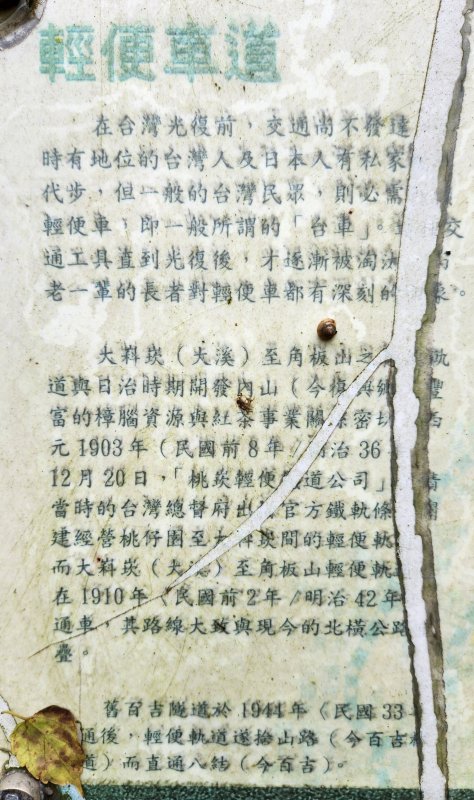 輕便車道
在台灣光復前，交通尚不發達
時有地位的台灣人及日本人有私家
代步，但一般的台灣民眾，則必需
輕便車，即一般所謂的「台車」。 交
通工具直到光復後，才逐漸被淘汰
老一輩的長者對輕便車都有深刻的 象。
大嵙崁（大溪）至角板山之 軌
道與日治時期開發內山（今復 鄉 豐
富的樟腦資源與紅茶事業關係密切
元1903年（民國前8年／明治36
12月20日，「桃崁輕便 道公司」
當時的台灣總督府出 官方鐵軌條
建經營桃仔園至大嵙崁間的輕便軌
而大嵙崁（大溪）至角板山輕便軌
在1910年（民國前2年／明治42年
通車，其路線大致與現今的北橫公路
疊。
舊百吉隧道於1944年（民國33
通後，輕便軌道遂捨山路（今百吉
道）而直通八結（今百吉）。